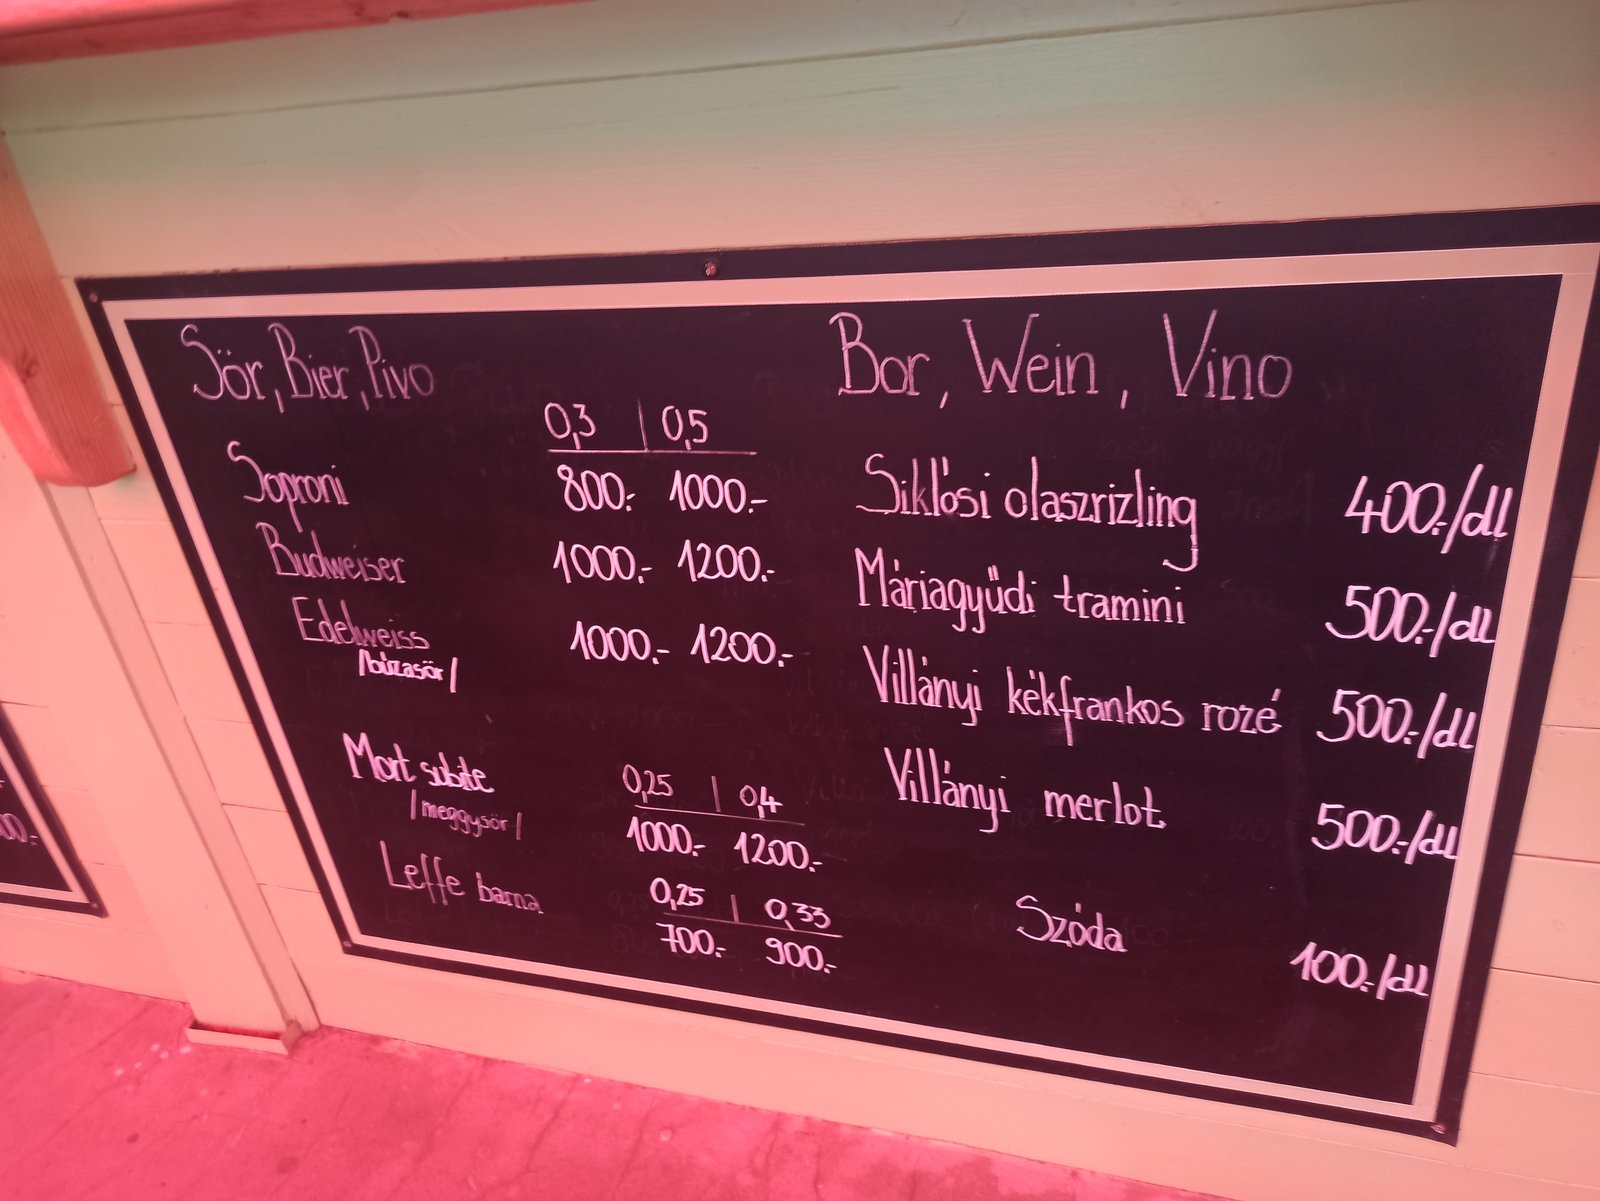 Sör, Bier, Pivo
0,3 | 0,5
Soproni 800.- 1000.-
Budweiser 1000.- 1200.-
Edelweiss 1000.- 1200.-
/búzasör/
Mort subite 0,25 | 0,4
/meggysör/ 1000.- 1200.-
Leffe barna 0,25 | 0,33
700.- 900.-
Bor, Wein, Vino
Siklósi olaszrizling 400.-/dl
Máriagyűdi tramini 500.-/dl
Villányi kékfrankos rozé 500.-/dl
Villányi merlot 500.-/dl
Szóda 100.-/dl